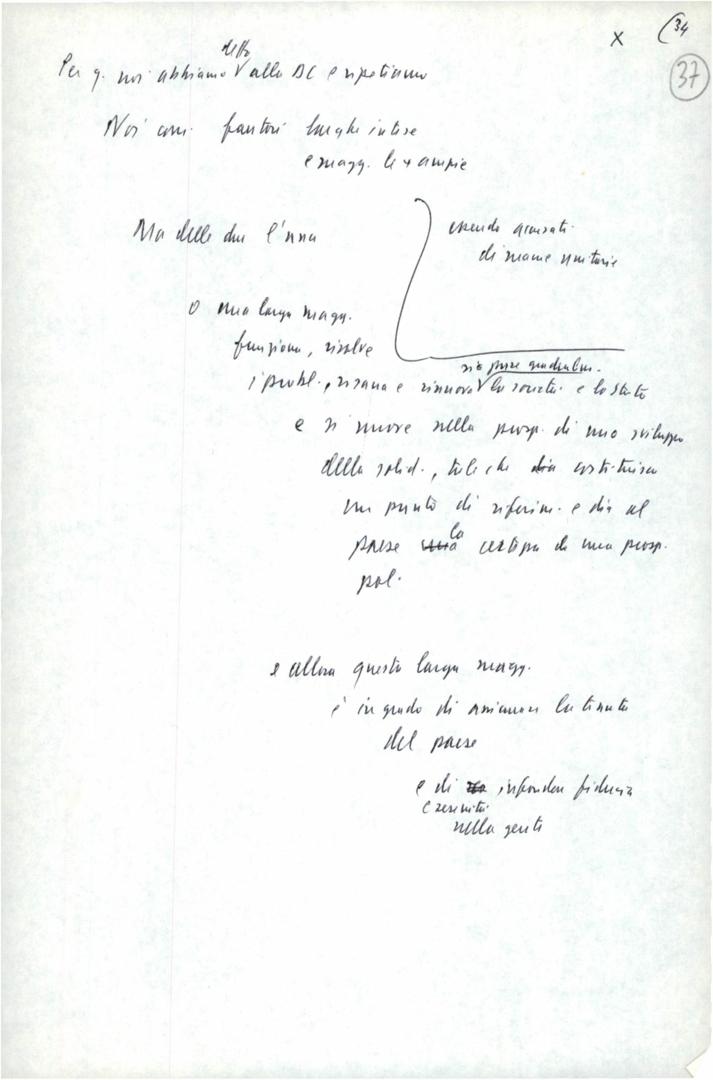 X (34
37
Per q. noi abbiamo detto alla DC e ripetiamo
Noi com. fautori larghe intese
e magg. le + ampie
Ma delle due l'una
essendo accusati
di manie unitarie
o una larga magg.
funziona, risolve
sia pure gradualm.
i probl., risana e rinnova la società e lo Stato
e si muove nella prosp. di uno sviluppo
della solid., tale che costituisca
un punto di riferim. e dia al
paese la certezza di una prosp.
pol.
e allora questa larga magg.
è in grado di assicurare la tenuta
del paese
e di infondere fiducia
e serenità
nella gente